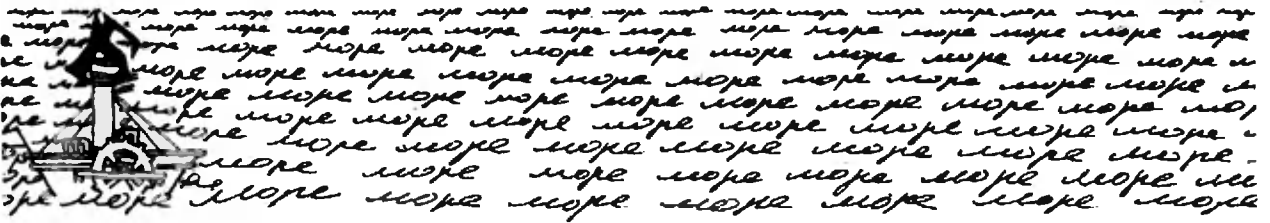 море море море море море море море море море море море море море
море море море море море море море море море море море море
море море море море море море море море море море море
море море море море море море море море море море
море море море море море море море море море
море море море море море море море море море
море море море море море море море море
море море море море море море море
море море море море море море море море